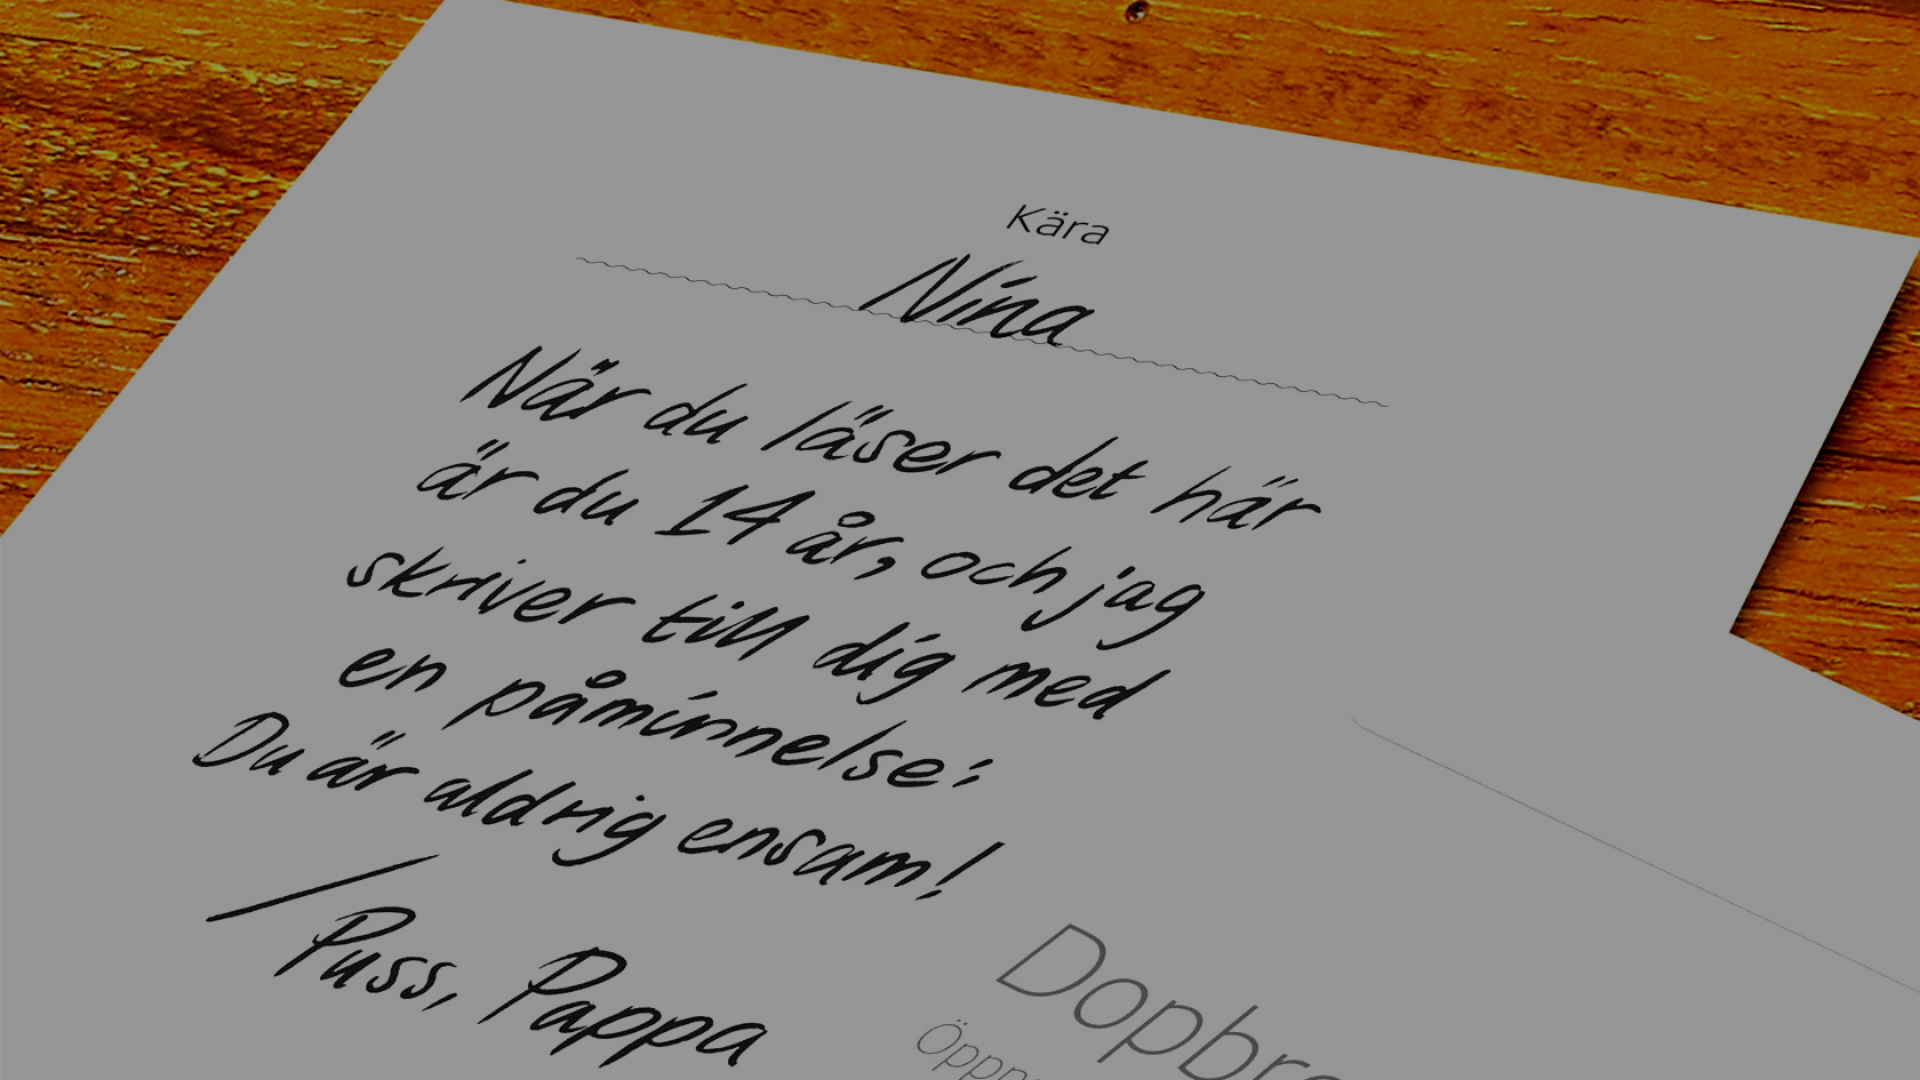 Kära
Nina
När du läser det här
är du 14 år, och jag
skriver till dig med
en påminnelse:
Du är aldrig ensam!
/Puss, Pappa